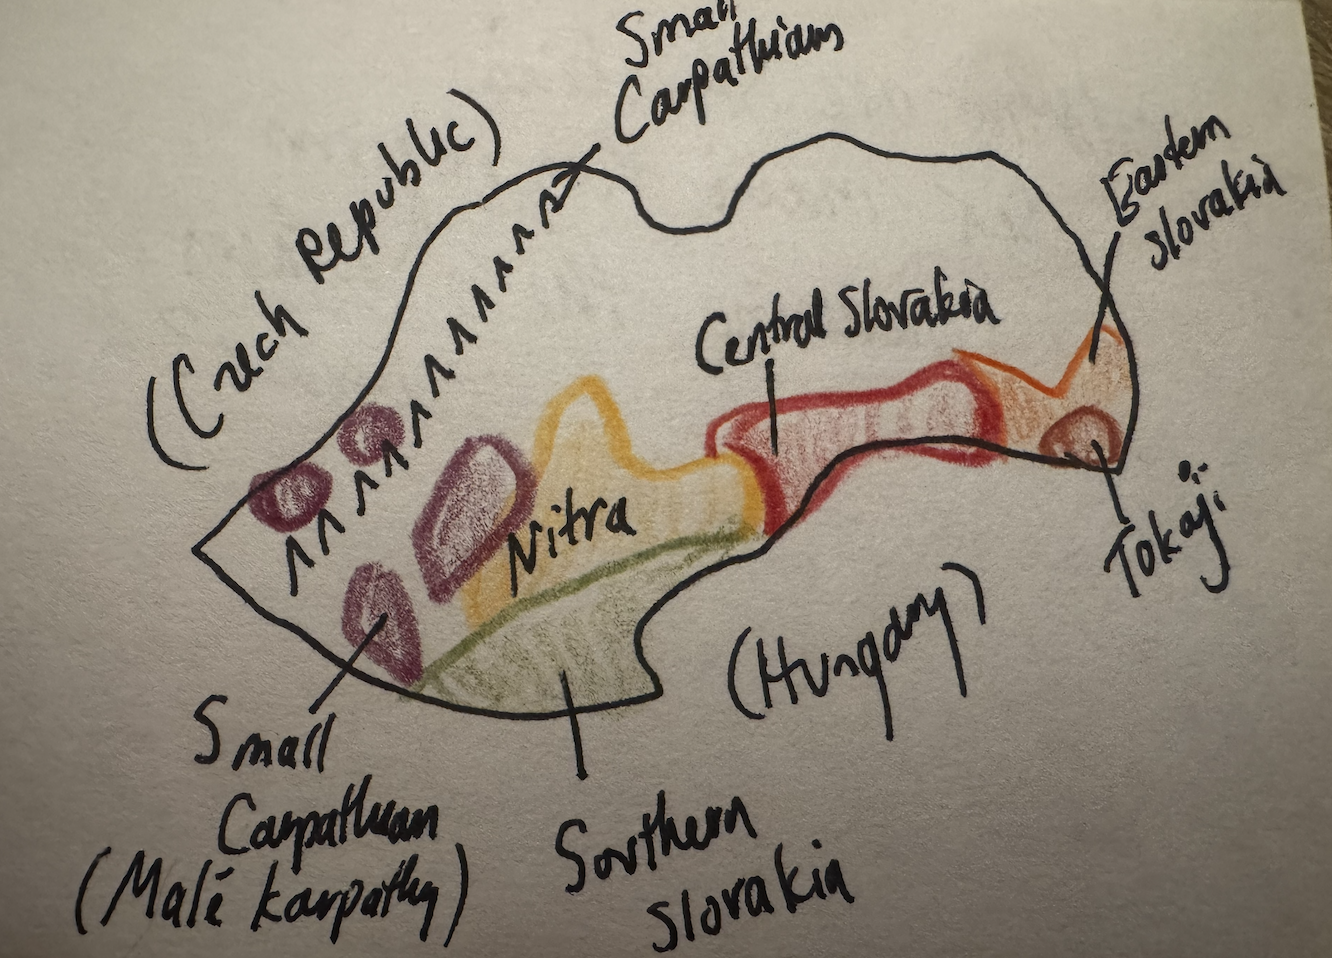 Small
Carpathians
(Czech Republic)
Eastern
slovakia
Central Slovakia
Nitra
Tokaji
(Hungary)
Small
Carpathian
(Malé karpathy)
Southern
slovakia